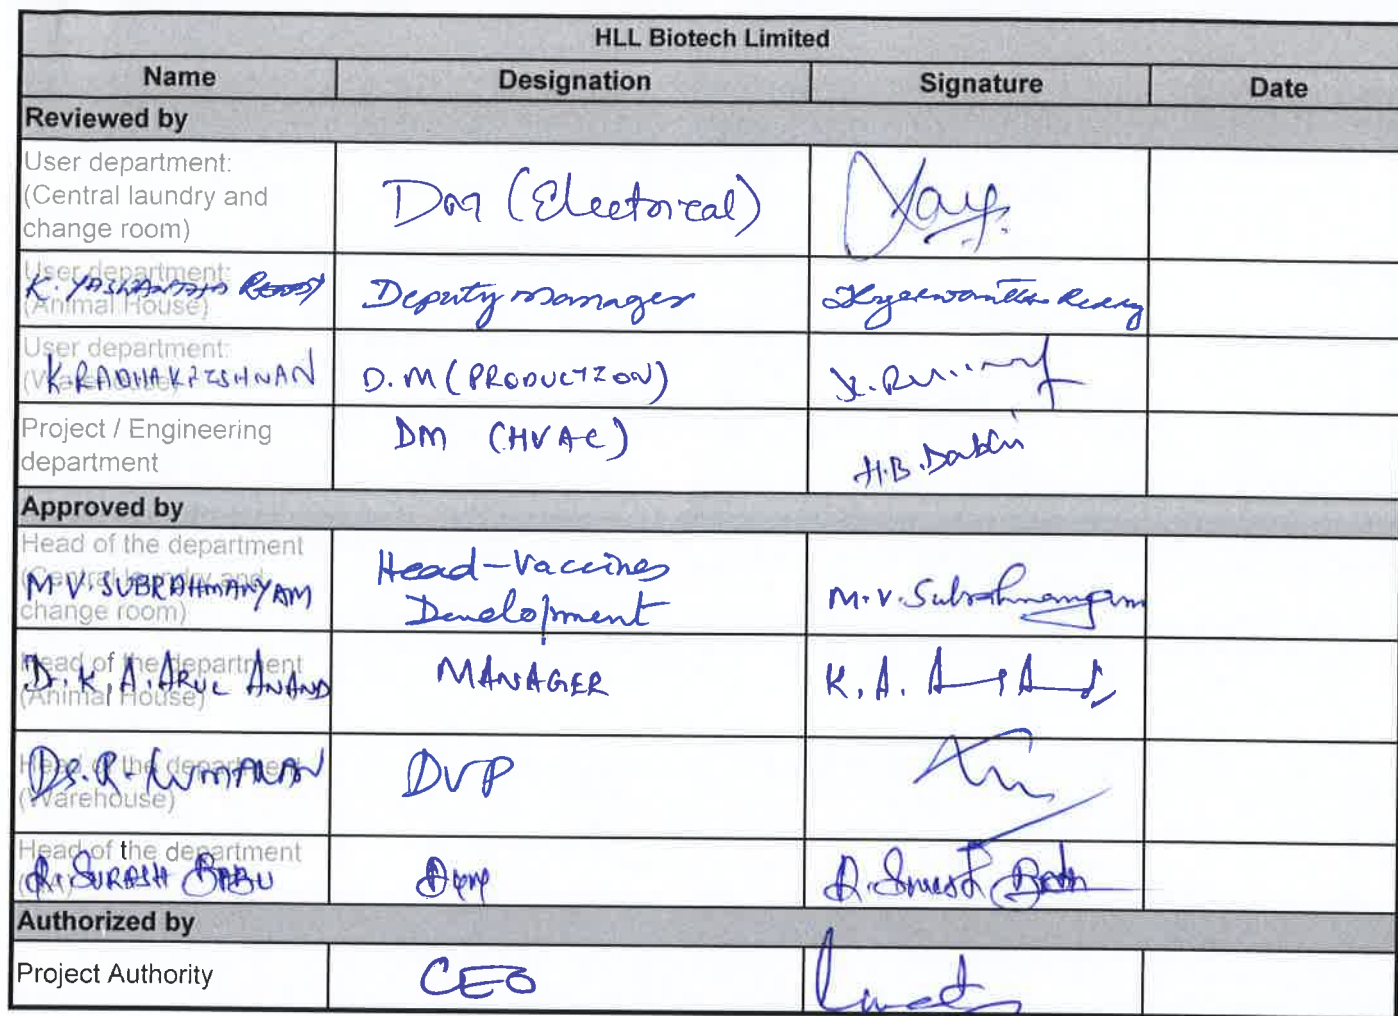 HLL Biotech Limited
Name Designation Signature Date
Reviewed by
User department:
(Central laundry and
change room)
DM (Electrical)
User department:
(Animal House)
K. YASHWANTHA REDDY
Deputy manager
User department:
K. RADHAKRISHNAN
D.M (PRODUCTION)
Project / Engineering
department
DM (HVAC)
Approved by
Head of the department
(Central laundry and
change room)
M.V. SUBRAHMANYAM
Head-Vaccines
Development
M.V. Subrahmanyam
Head of the department
(Animal House)
Dr. K. A. ARUL ANAND
MANAGER
K. A.
Head of the department
(Warehouse)
DVP
Head of the department
R. SURASH BABU
Authorized by
Project Authority
CEO